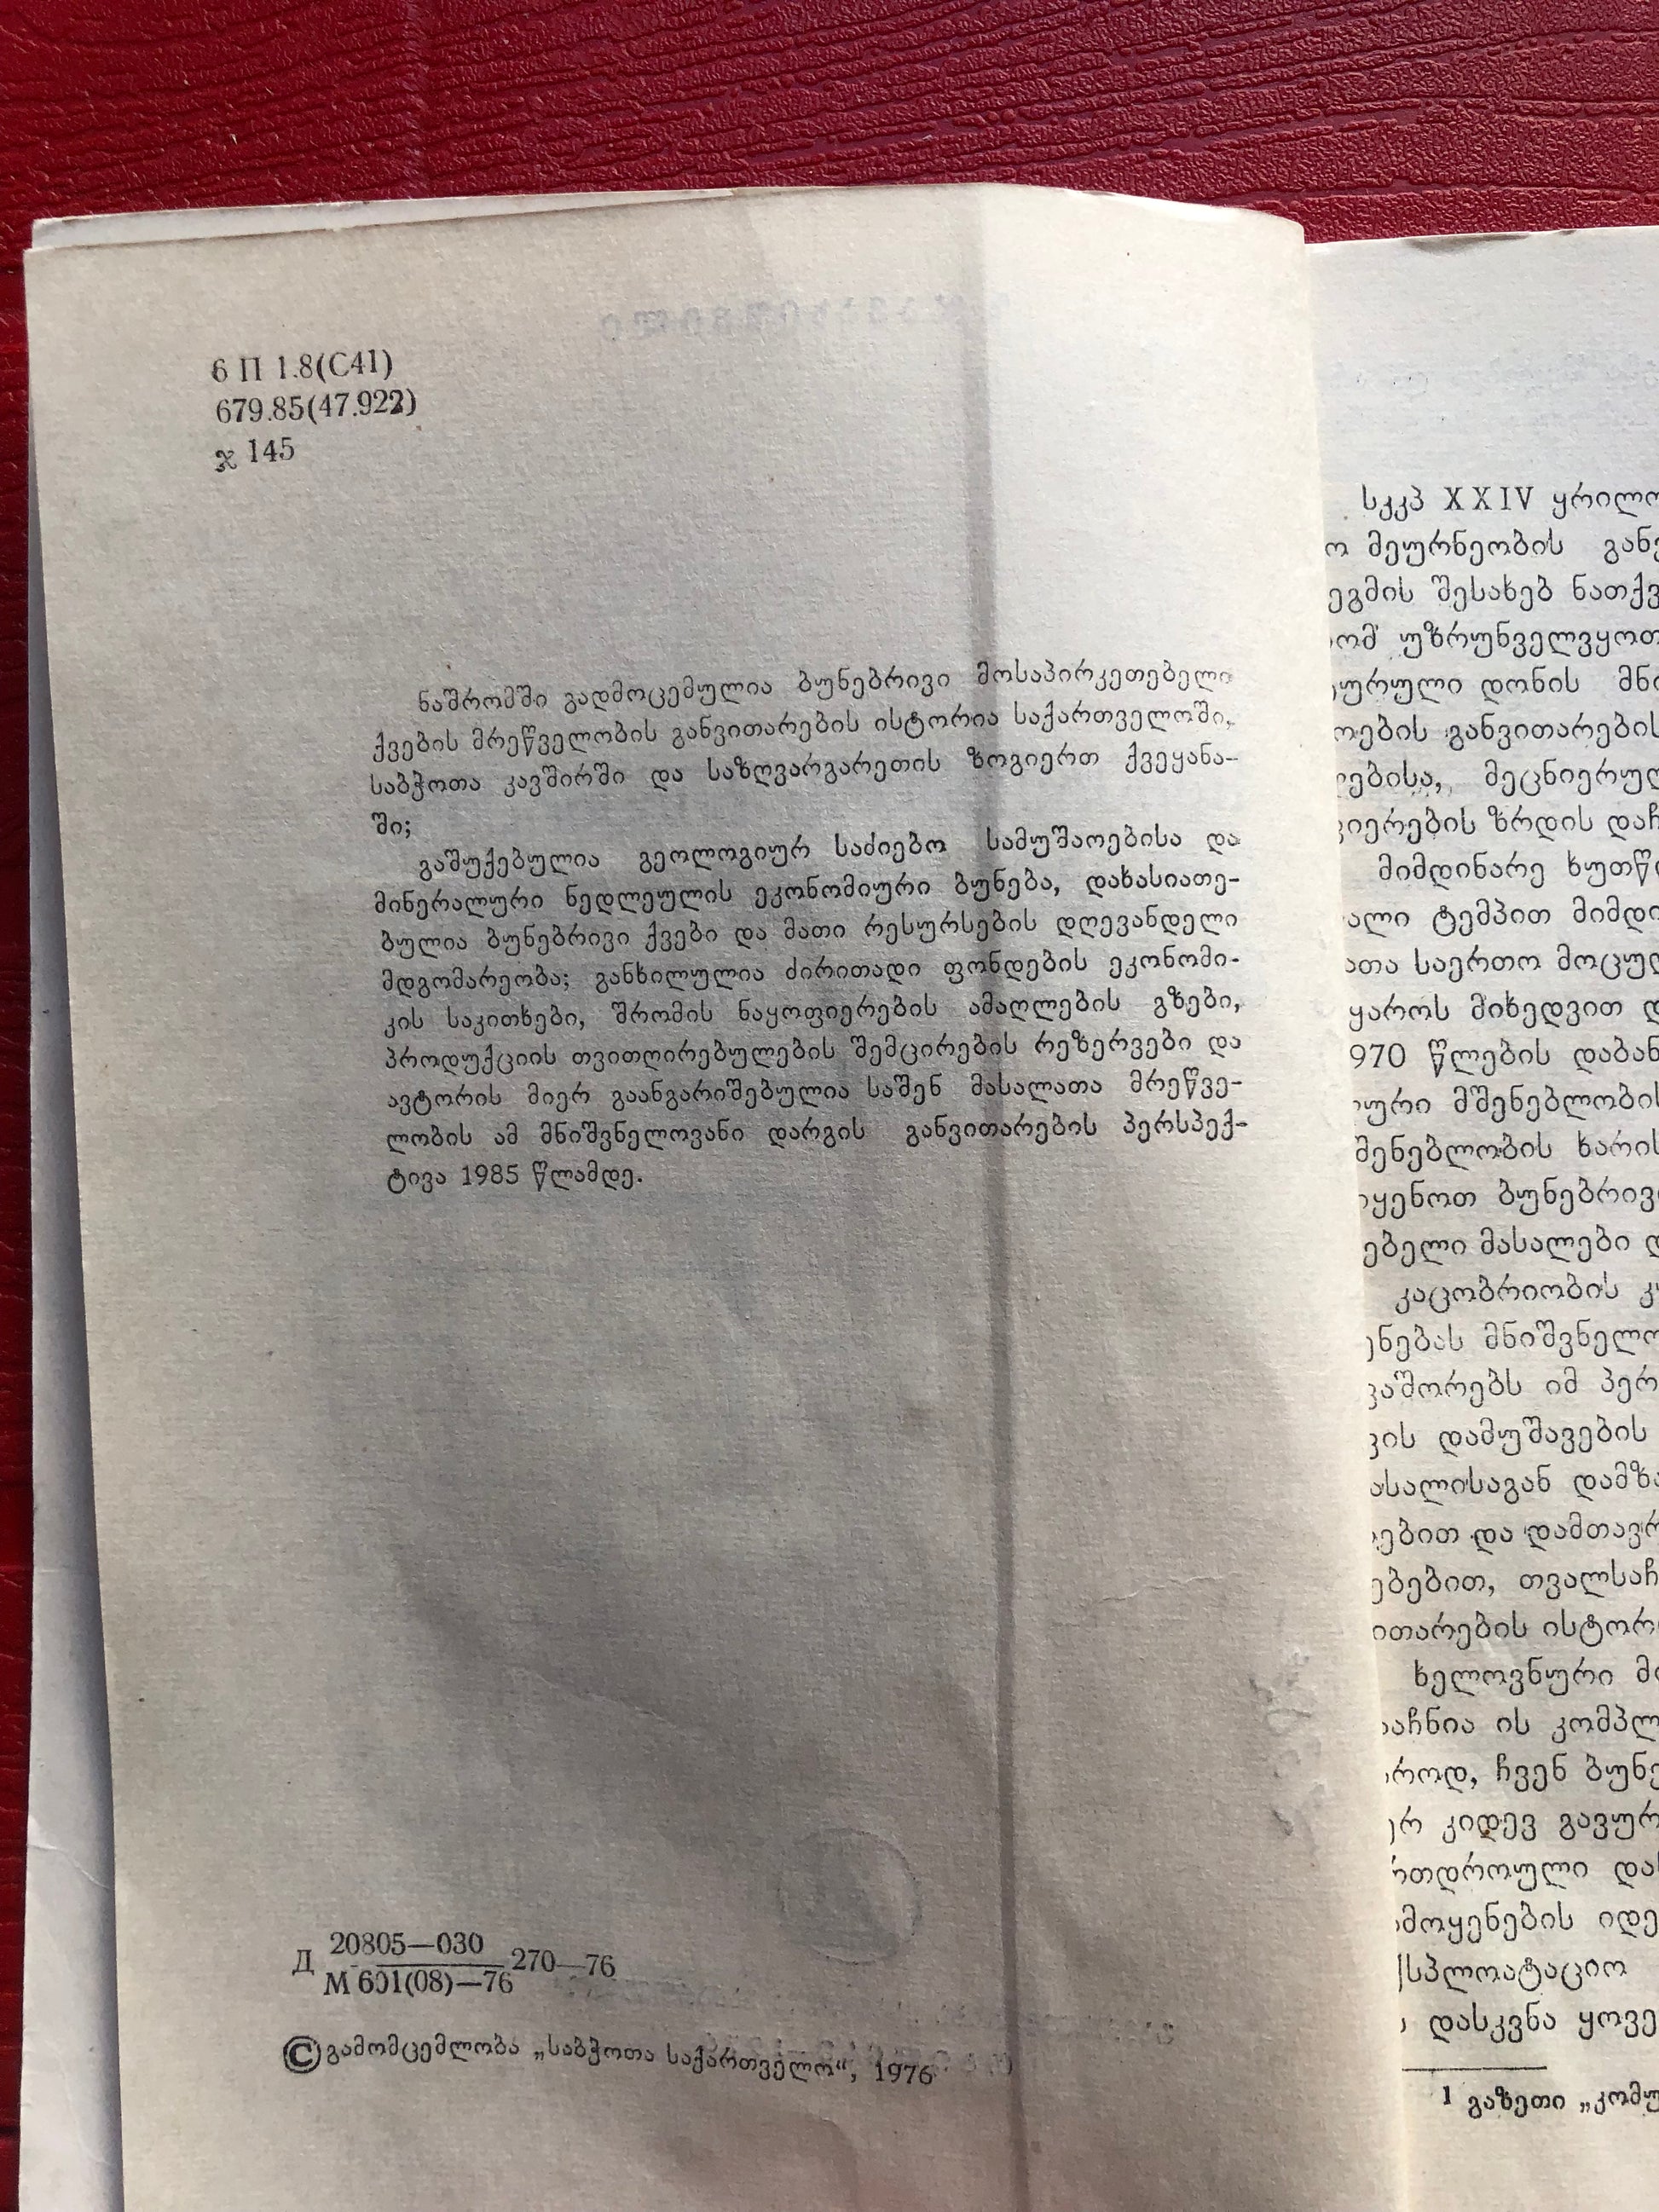 6 П 1.8(С41)
679.85(47.922)
ჯ 145
ნაშრომში გადმოცემულია ბუნებრივი მოსაპირკეთებელი
ქვების მრეწველობის განვითარების ისტორია საქართველოში,
საბჭოთა კავშირში და საზღვარგარეთის ზოგიერთ ქვეყანა-
ში;
გაშუქებულია გეოლოგიურ საძიებო სამუშაოებისა და
მინერალური ნედლეულის ეკონომიური ბუნება, დახასიათე-
ბულია ბუნებრივი ქვები და მათი რესურსების დღევანდელი
მდგომარეობა; განხილულია ძირითადი ფონდების ეკონომი-
კის საკითხები, შრომის ნაყოფიერების ამაღლების გზები,
პროდუქციის თვითღირებულების შემცირების რეზერვები და
ავტორის მიერ გაანგარიშებულია საშენ მასალათა მრეწვე-
ლობის ამ მნიშვნელოვანი დარგის განვითარების პერსპექ-
ტივა 1985 წლამდე.
Д 20805—030
М 601(08)—76 270—76
© გამომცემლობა „საბჭოთა საქართველო“, 1976
სკკპ XXIV ყრილო
ო მეურნეობის განვ
ეგმის შესახებ ნათქვ
ომ უზრუნველვყოთ
ურული დონის მნი
ოების განვითარების
ებისა, მეცნიერულ
იერების ზრდის დაჩ
მიმდინარე ხუთწ
ალი ტემპით მიმდი
ათა საერთო მოცულ
ყაროს მიხედვით დ
970 წლების დაბან
ური მშენებლობის
შენებლობის ხარის
ყენოთ ბუნებრივ
ებელი მასალები დ
კაცობრიობის კ
ენებას მნიშვნელო
აშორებს იმ პერ
ვის დამუშავების
ასალისაგან დამზა
ებით და დამთავრ
ებებით, თვალსაჩ
ითარების ისტორ
ხელოვნური მ
აჩნია ის კომპლ
როდ, ჩვენ ბუნე
რ კიდევ გავურ
რთდროული და
მოყენების იდე
სპლოატაციო
დასკვნა ყოვე
1 გაზეთი „კომუ